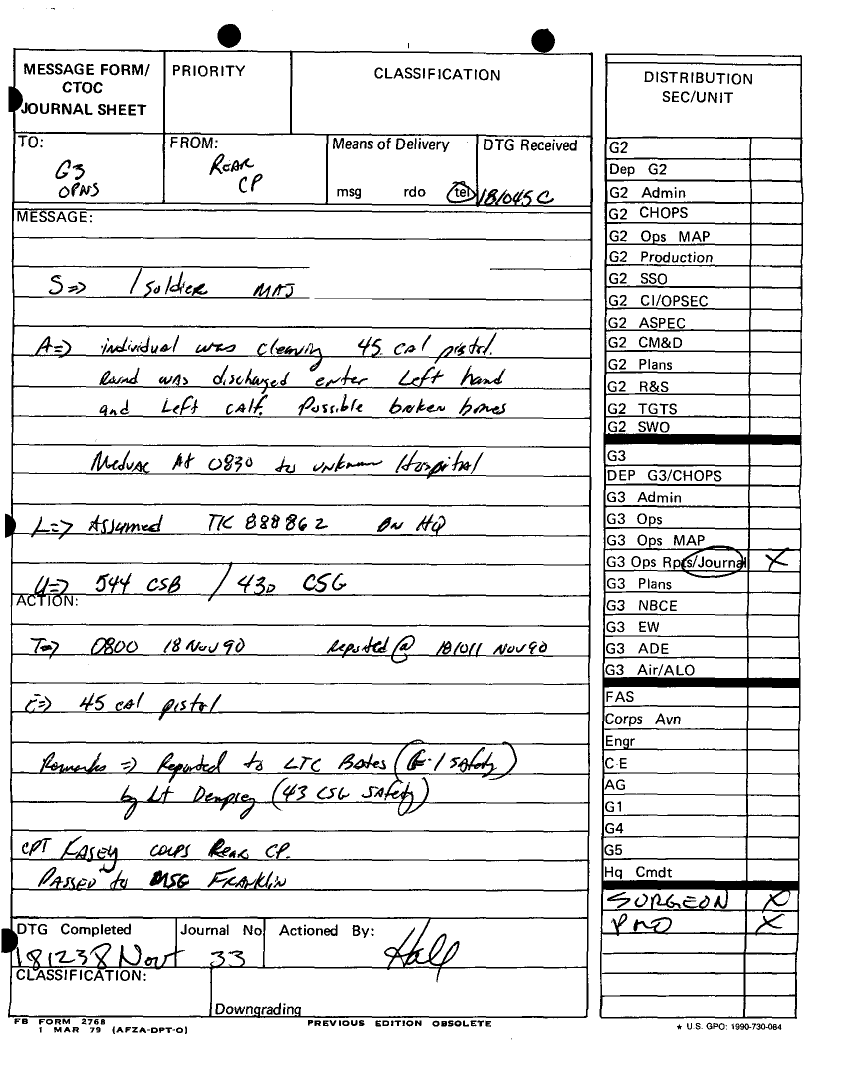 MESSAGE FORM/
CTOC
JOURNAL SHEET
PRIORITY
CLASSIFICATION
TO:
G3
OPNS
FROM:
REAR
CP
Means of Delivery
msg rdo tel
DTG Received
181045C
MESSAGE:
S=> 1 soldier MAJ
A=> individual was cleaning 45 cal pistol.
Round was discharged enter Left hand
and Left calf. Possible broken bones
Medvac At 0830 to unknown Hospital
L=> Assumed TK 888862 BN HQ
U=> 544 CSB / 43D CSG
ACTION:
T=> 0800 18 Nov 90 reported @ 181011 Nov 90
E=> 45 cal pistol
Remarks => Reported to LTC Bates (G-1 Safety)
by Lt Dempsey (43 CSG Safety)
CPT KASEY CORPS REAR CP.
PASSED to MSG FRANKLIN
DTG Completed
181238 Nov
Journal No
33
Actioned By:
Hall
CLASSIFICATION:
Downgrading
FB FORM 2768
1 MAR 79 (AFZA-DPT-O)
PREVIOUS EDITION OBSOLETE
DISTRIBUTION
SEC/UNIT
G2
Dep G2
G2 Admin
G2 CHOPS
G2 Ops MAP
G2 Production
G2 SSO
G2 CI/OPSEC
G2 ASPEC
G2 CM&D
G2 Plans
G2 R&S
G2 TGTS
G2 SWO
G3
DEP G3/CHOPS
G3 Admin
G3 Ops
G3 Ops MAP
G3 Ops Rpts/Journal X
G3 Plans
G3 NBCE
G3 EW
G3 ADE
G3 Air/ALO
FAS
Corps Avn
Engr
C-E
AG
G1
G4
G5
Hq Cmdt
SURGEON X
PMO X
★ U.S. GPO: 1990-730-084